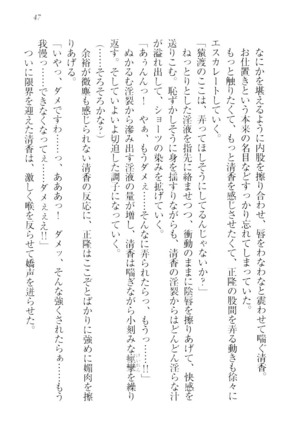 47
なにかを堪えるように内股を擦り合わせ、唇をわなわなと震わせて喘ぐ清香。
お仕置きという本来の名目などすっかり忘れてしまっていた。
もっと触りたくて、もっと清香を感じさせたくて、正隆の股間を弄る動きも徐々に
エスカレートしていく。
「猿渡のここは、弄ってほしそうにしてるんじゃないか？」
じっとりとした淫液を指先に絡ませつつ、衝動のままに陰唇を擦りあげて、快感を
送りこむ。恥ずかしそうに身を揺すりながらも、清香の淫裂からはどんどん淫らな汁
が溢れ出して、ショーツの染みを拡げていく。
「あぅんんっ！　やぁ、もうダメぇ……そんなに弄られたらぁ、もうっ……!!」
ぬかるむ淫裂から滲み出す淫液の量が増し、清香は喘ぎながら小刻みな痙攣を繰り
返す。そしていよいよ切迫した調子になっていく。
（……そろそろかな？）
余裕が微塵も感じられない清香の反応に、正隆はここぞとばかりに強めに媚肉を擦
りあげる。
「だめっ、ダメですわっ……っ、あああっ！　ダメッ、そんな強くされたらぁ……もう
我慢っ……できなくなってぇ……ダメぇぇぇ!!」
ついに限界を迎えた清香は、激しく喉を反らせて嬌声を迸らせた。